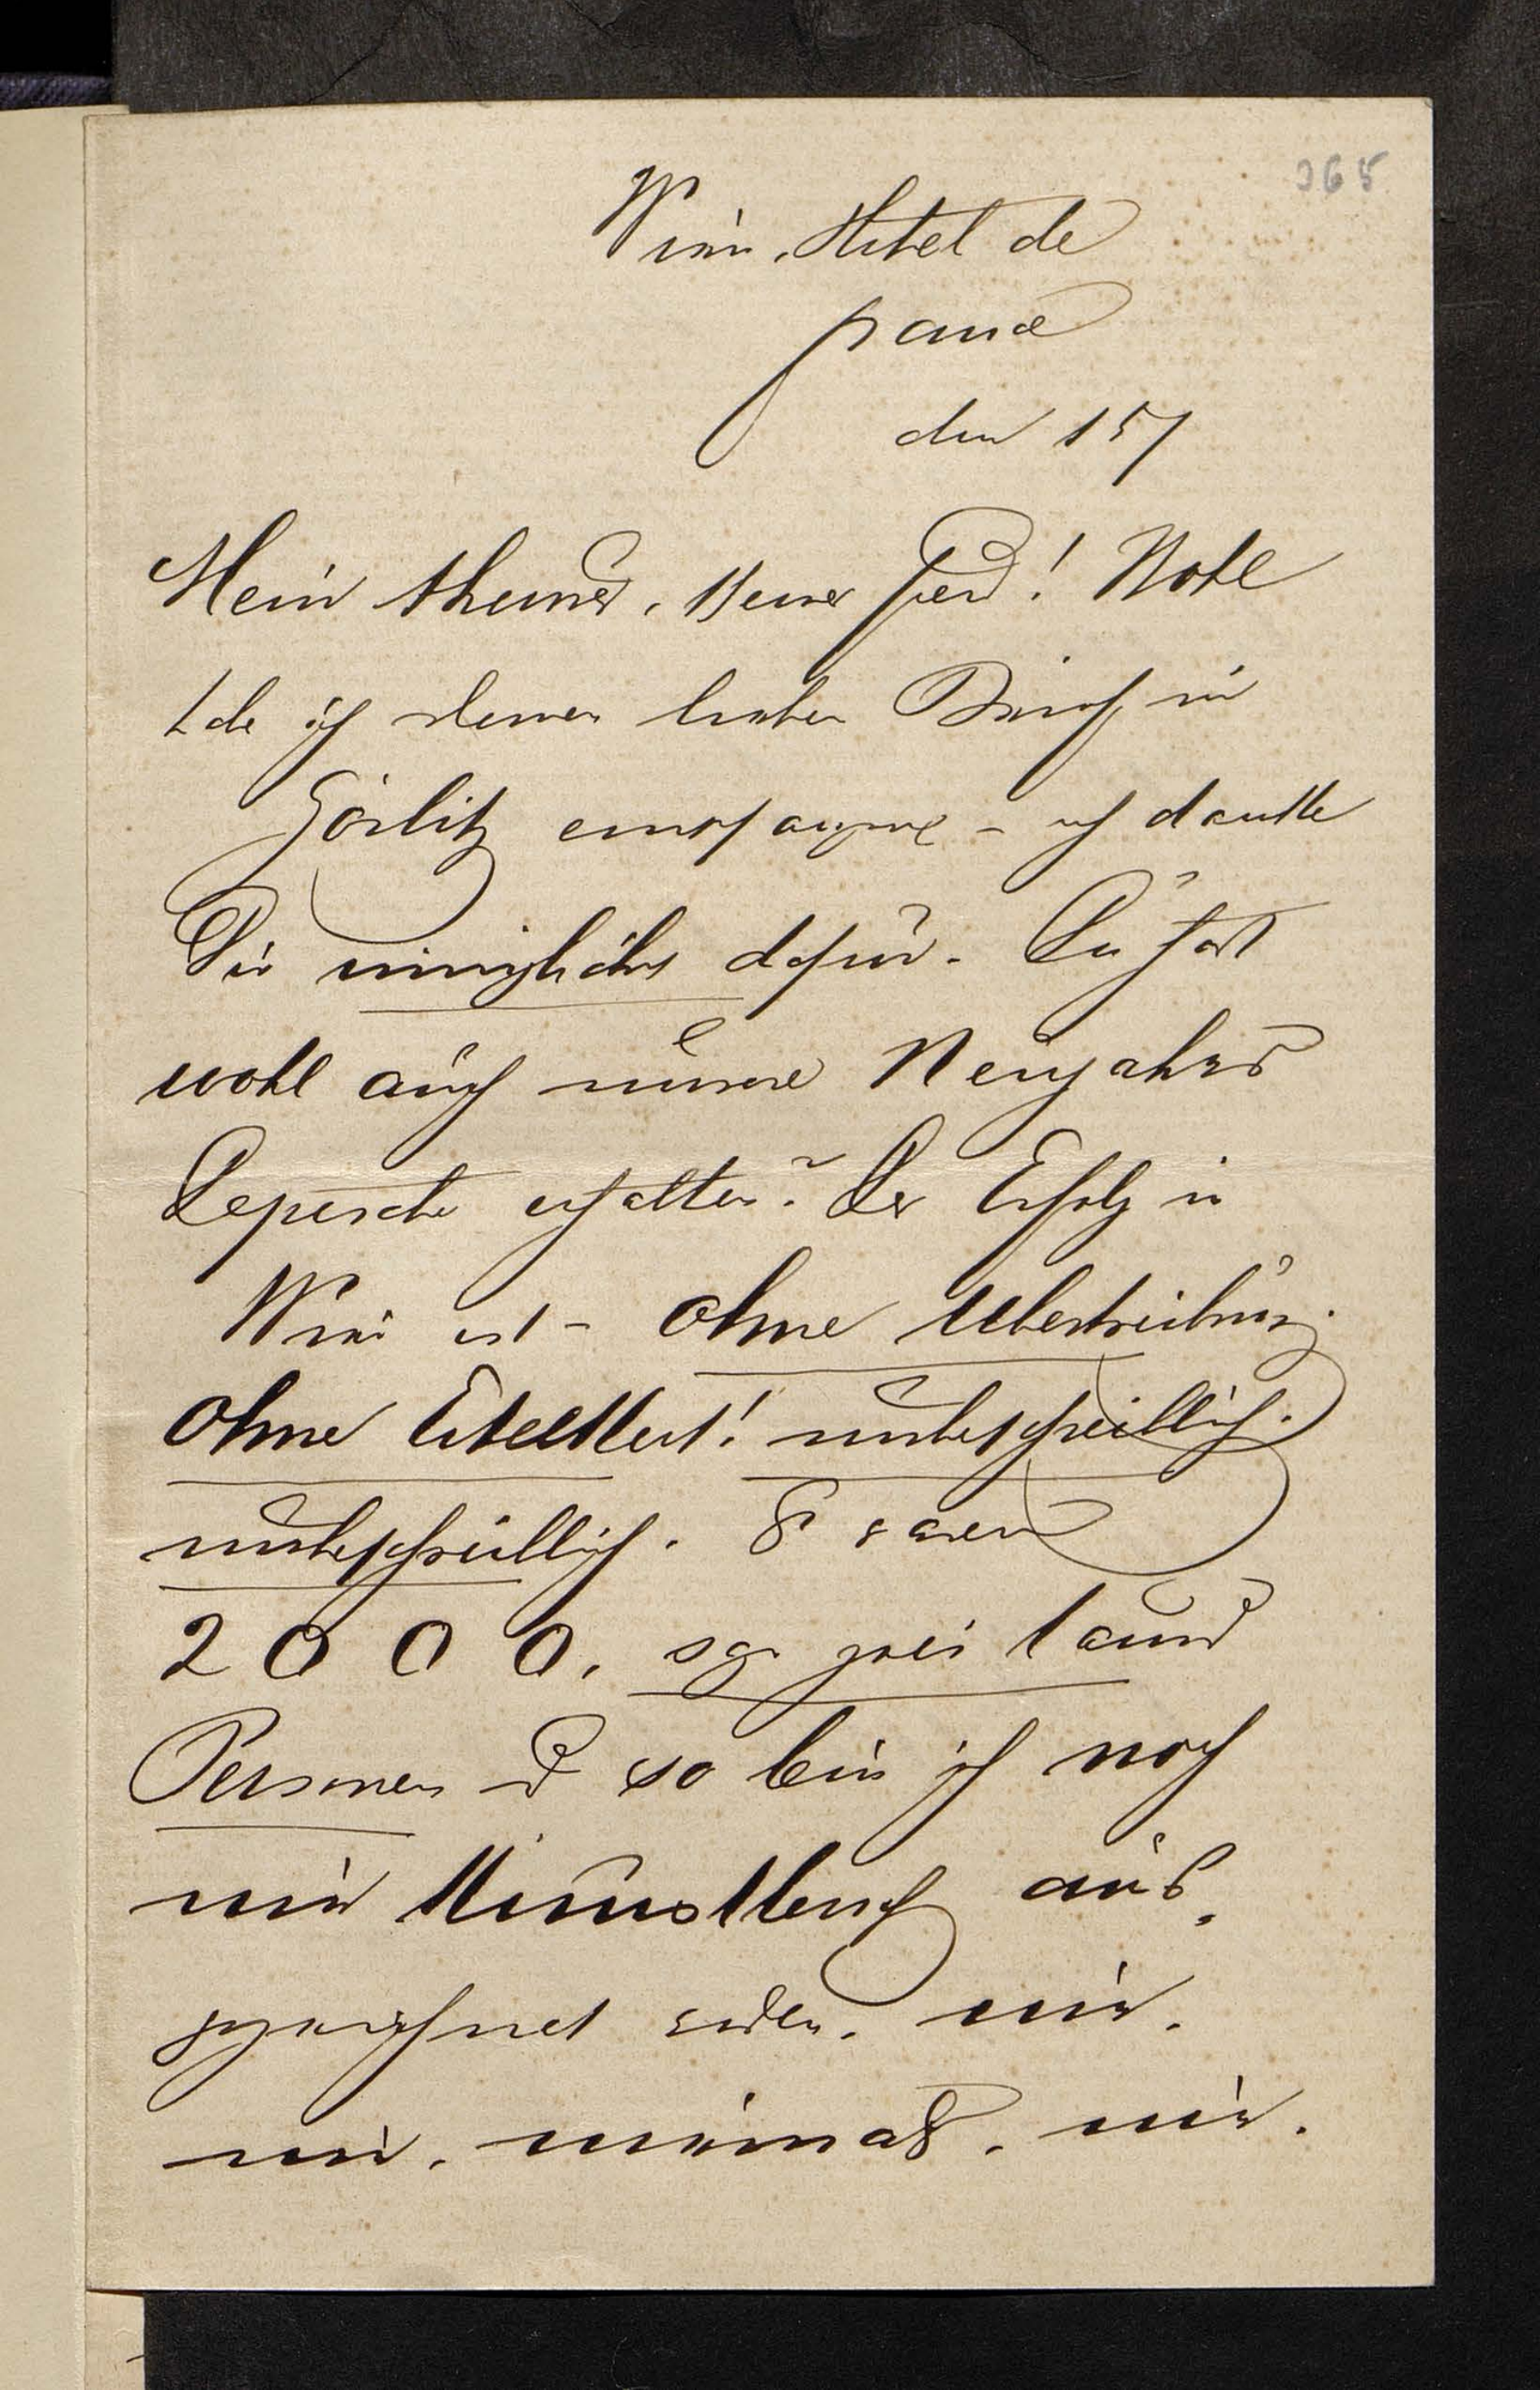 365
Wien, Hotel de
France
den 15/
Mein theurer, Freund! Wohl
habe ich deinen lieben Brief in
Görlitz empfangen – ich danke
Dir inniglichst dafür. Du hast
wohl auch unsere Neujahrs
Depesche erhalten? Der Erfolg in
Wien ist – ohne Uebertreibung
ohne Eitelkeit! unbeschreiblich.
unbeschreiblich. Es waren
2000, sage zwei tausend
Personen und so bin ich noch
nie Künstlerisch aus,
gezeichnet worden, nie,
nie, niemals, nie.